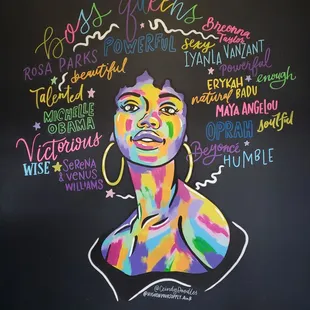 boss queens
POWERFUL
sexy
Breonna
Taylor
ROSA PARKS
IYANLA VANZANT
beautiful
Powerful
Talented
ERYKAH
BADU
enough
natural
MICHELLE
OBAMA
MAYA ANGELOU
OPRAH
soulful
Victorious
Beyoncé
WISE
SERENA
& VENUS
WILLIAMS
HUMBLE